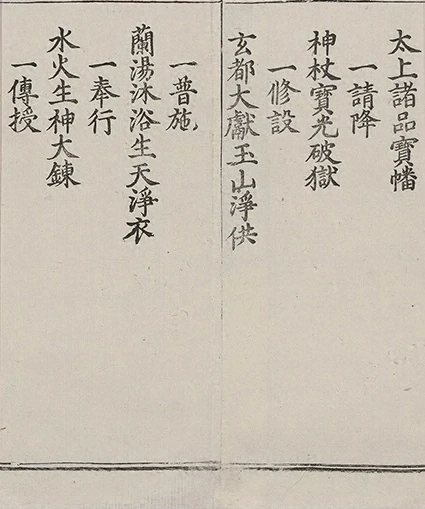 太上諸品寶幡
一請降
神杖寶光破獄
一修設
玄都大獻玉山淨供
一普施
蘭湯沐浴生天淨衣
一奉行
水火生神大鍊
一傳授